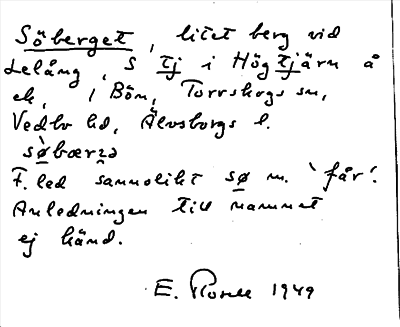 Söberget, litet berg vid
Lelång, S tj i Högtjärn å
ek, i Bön, Torrskogs sn,
Vedbo hd, Älvsborgs l.
sø̀bærʒə
F. led sannolikt sø m. 'får'.
Anledningen till namnet
ej känd.
E. Rosell 1949